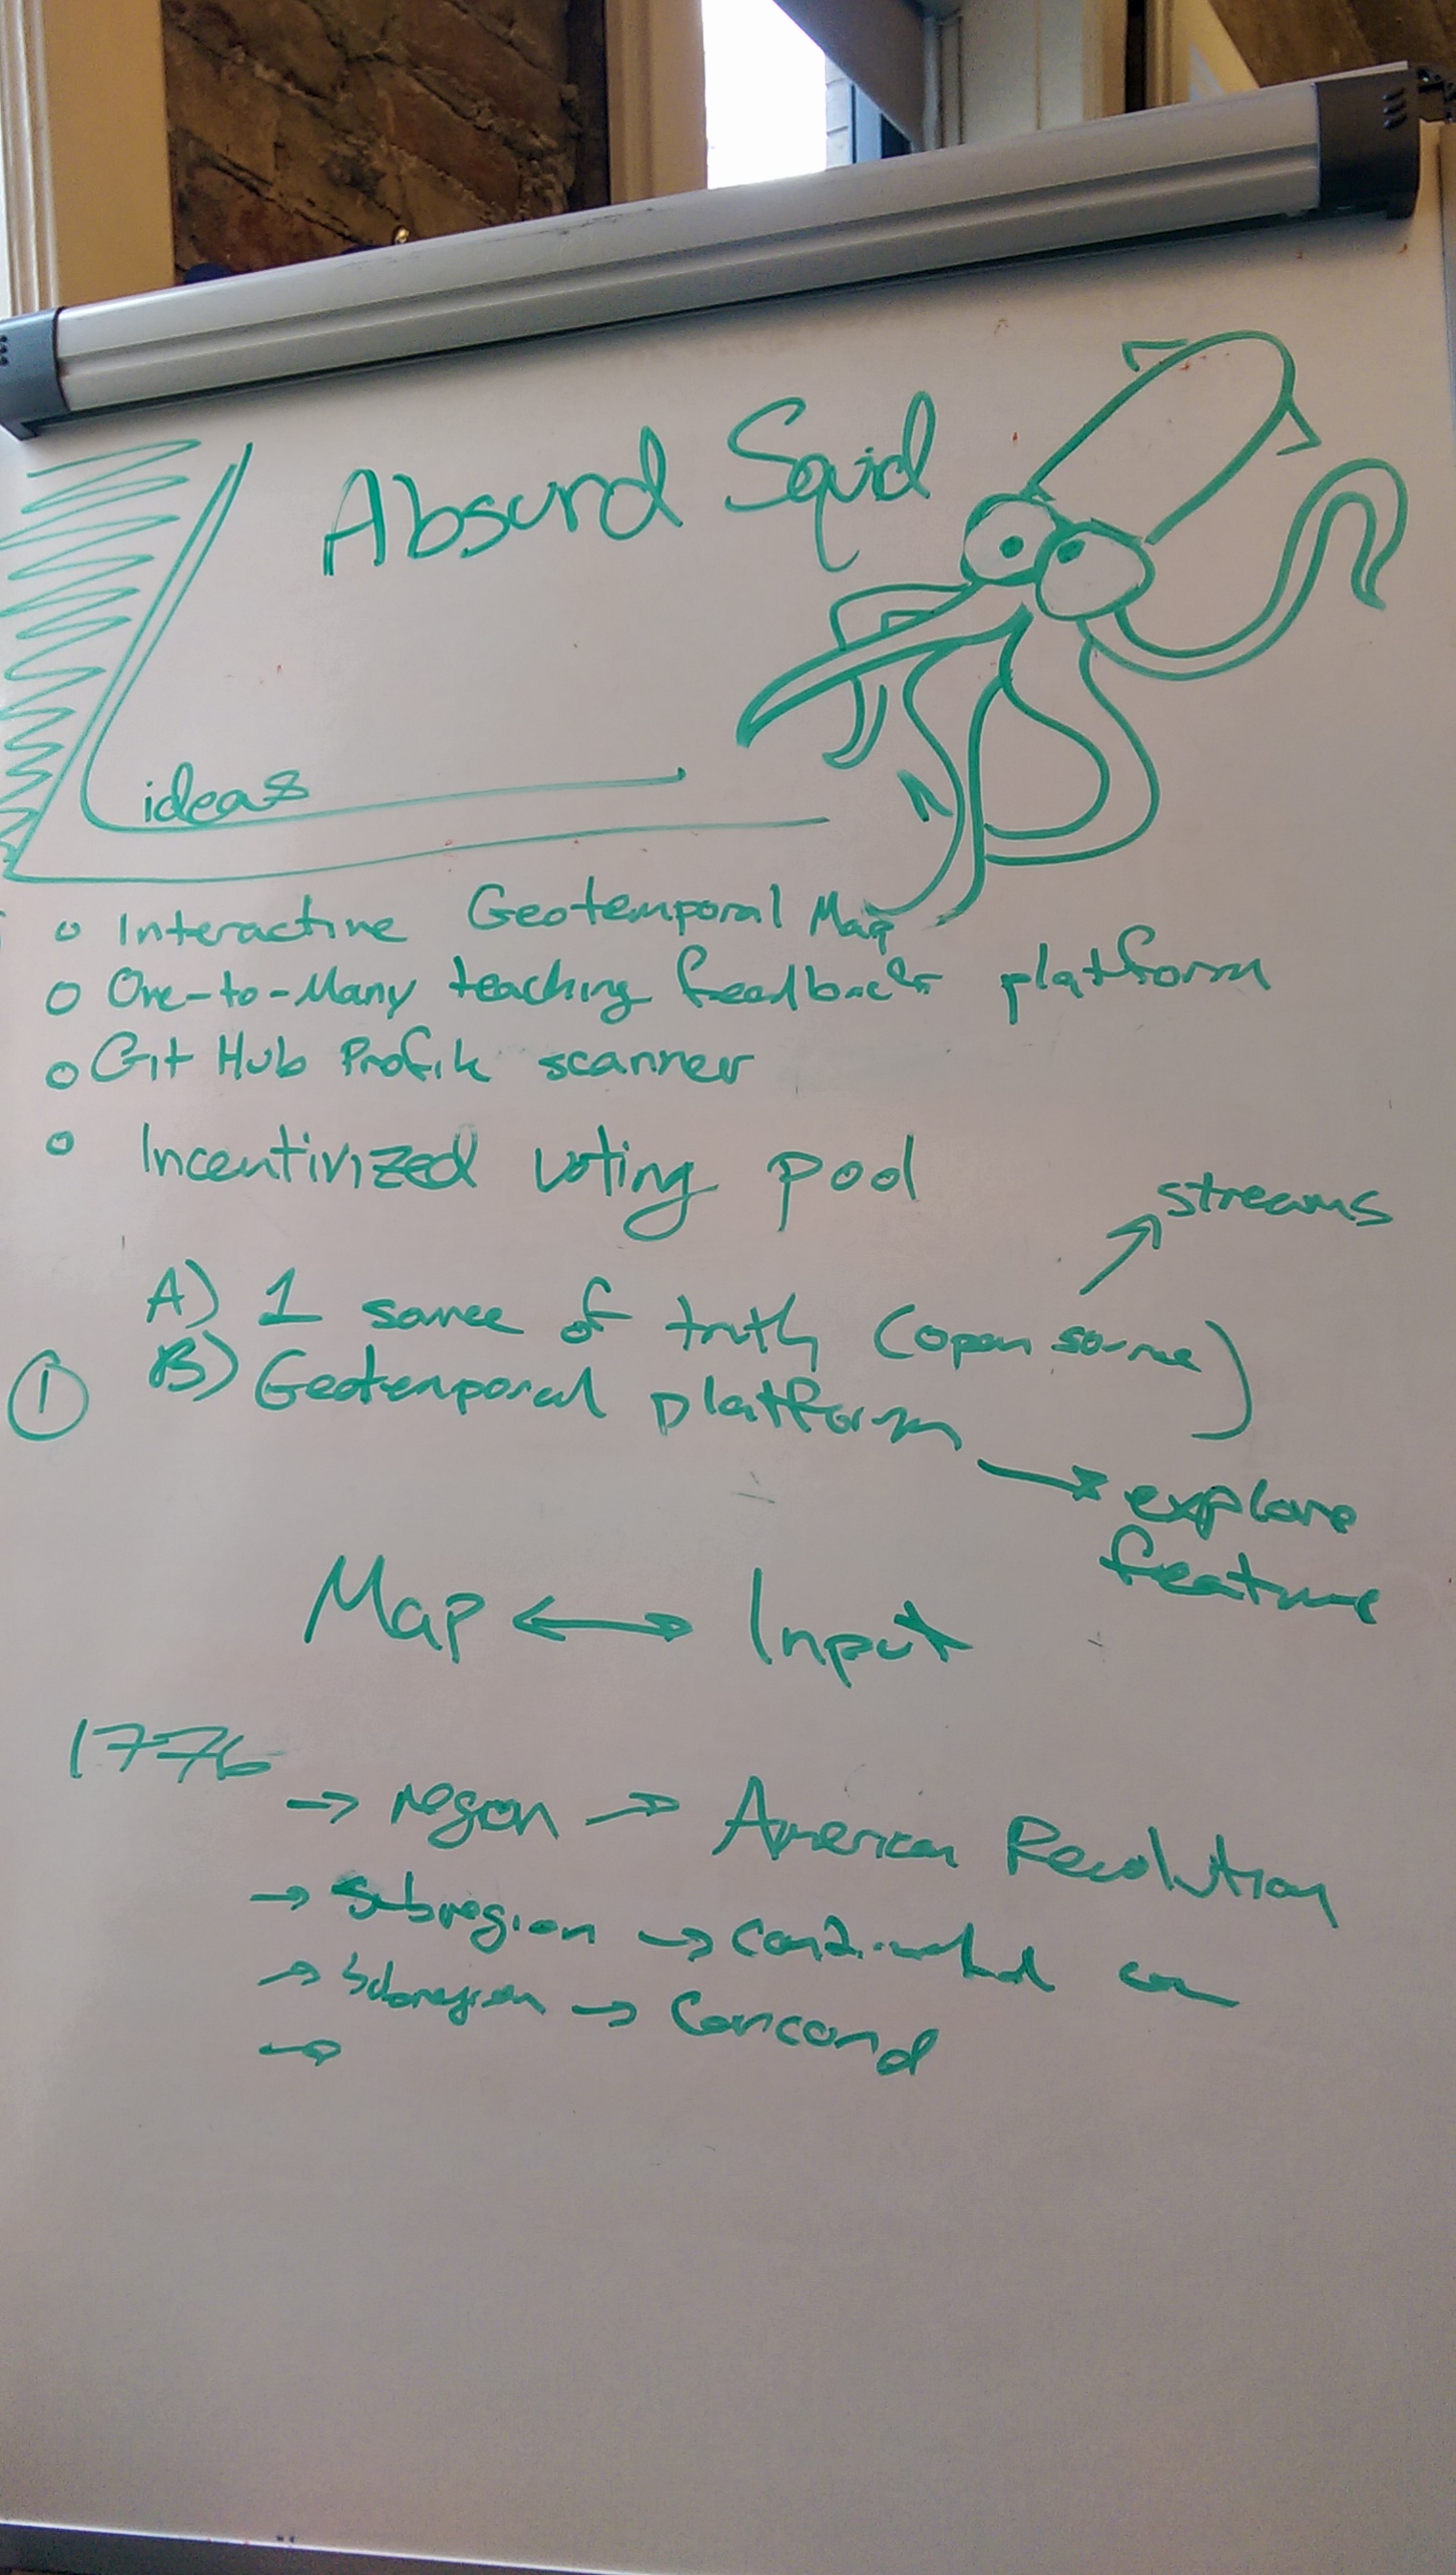 Absurd Squid
ideas
o Interactive Geotemporal Map
o One-to-Many teaching feedback platform
o GitHub Profile scanner
o Incentivized voting pool
streams
A) 1 source of truth (open source)
① B) Geotemporal platform
→ explore
feature
Map ↔ Input
1776
→ region → American Revolution
→ Subregion → Continental con
→ Subregion → Concord
→